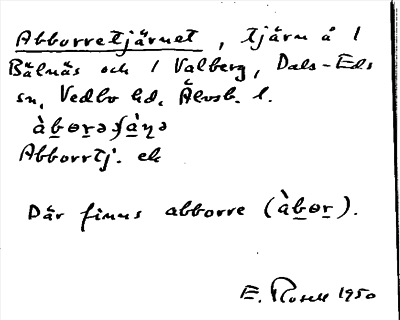 Abborretjärnet, tjärn å 1
Bälnäs och 1 Valberg, Dals-Eds
sn, Vedbo hd, Älvsb. l.
Abborrtj. ek
Där finns abborre (àbɵr).
E. Rosell 1950